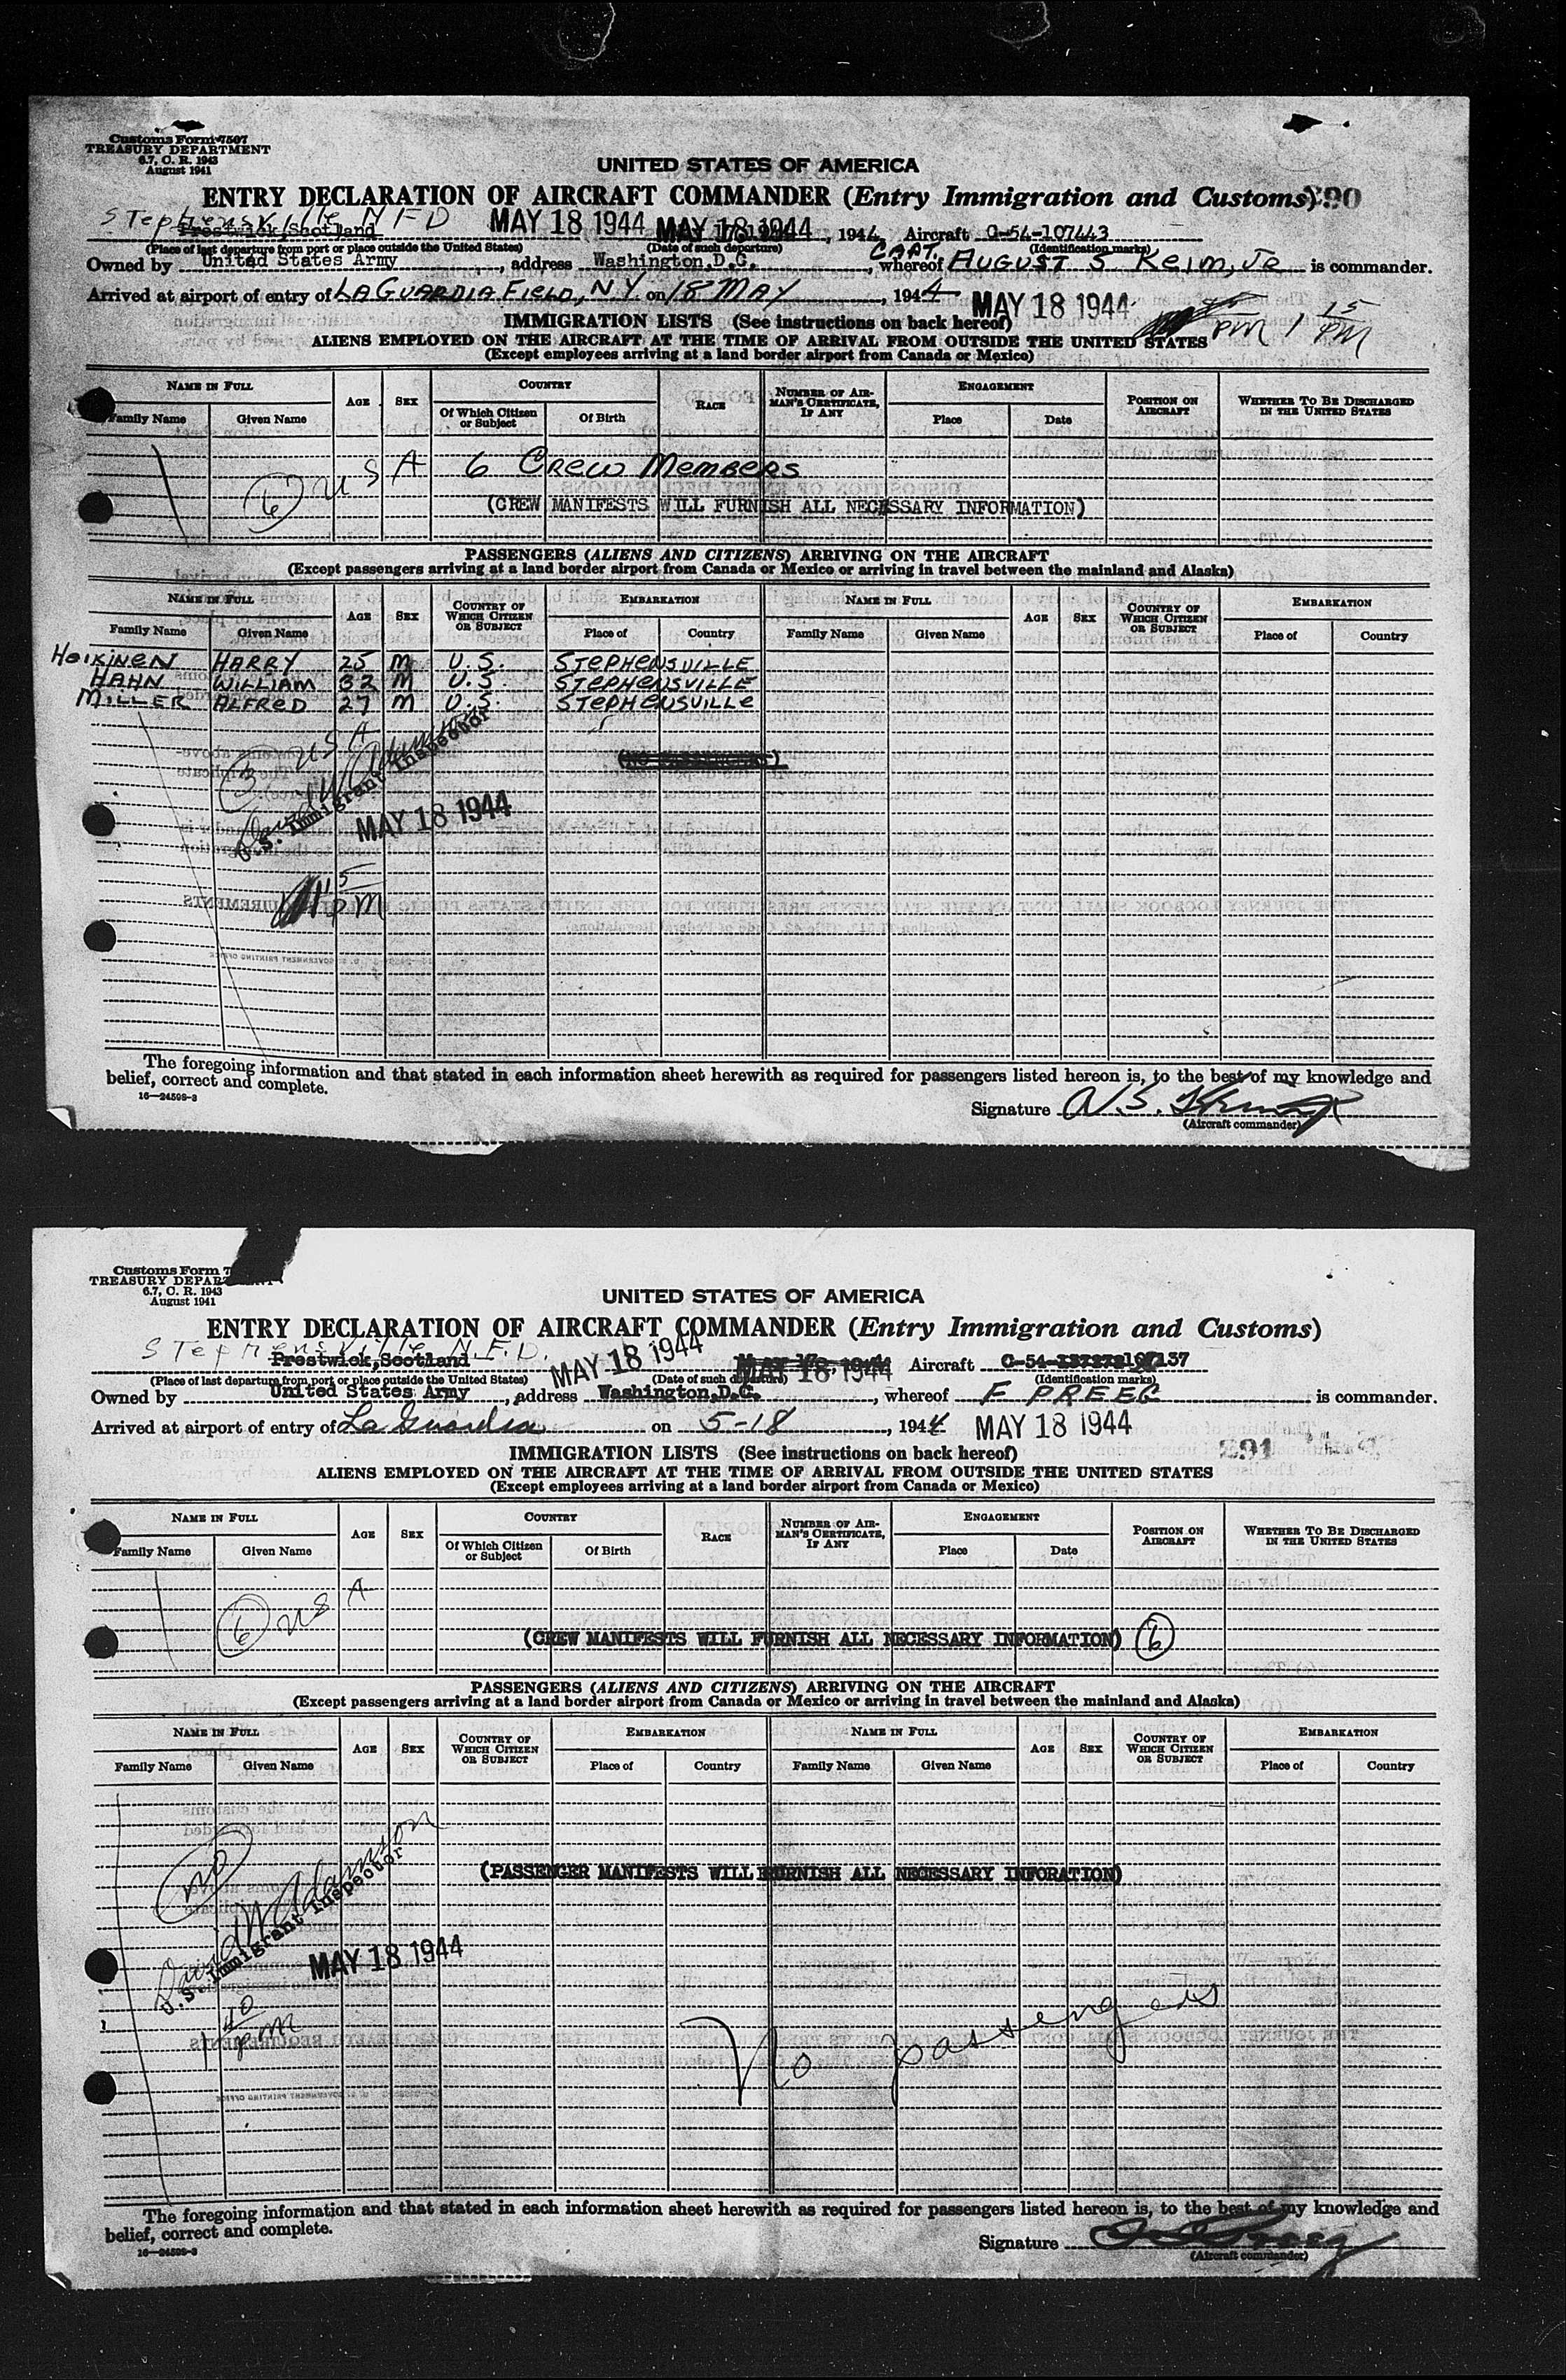 Customs Form 7507
TREASURY DEPARTMENT
6.7, C. R. 1943
August 1941
UNITED STATES OF AMERICA
ENTRY DECLARATION OF AIRCRAFT COMMANDER (Entry Immigration and Customs) 290
Stephensville NFD
Prestwick, Scotland MAY 18 1944 MAY 18 1944, 1944 Aircraft C-54-107443
(Place of last departure from port or place outside the United States) (Date of such departure) (Identification marks)
Owned by United States Army, address Washington, D.C., whereof CAPT. AUGUST S KEIM, JR is commander.
Arrived at airport of entry of LA GUARDIA FIELD, N.Y. on 18 MAY, 1944 MAY 18 1944 PM 1 15 PM
IMMIGRATION LISTS (See instructions on back hereof)
ALIENS EMPLOYED ON THE AIRCRAFT AT THE TIME OF ARRIVAL FROM OUTSIDE THE UNITED STATES
(Except employees arriving at a land border airport from Canada or Mexico)
NAME IN FULL AGE SEX COUNTRY RACE NUMBER OF AIRMAN'S CERTIFICATE, IF ANY ENGAGEMENT POSITION ON AIRCRAFT WHETHER TO BE DISCHARGED IN THE UNITED STATES
Family Name Given Name Of Which Citizen or Subject Of Birth Place Date
6 USA 6 CREW MEMBERS
(CREW MANIFESTS WILL FURNISH ALL NECESSARY INFORMATION)
PASSENGERS (ALIENS AND CITIZENS) ARRIVING ON THE AIRCRAFT
(Except passengers arriving at a land border airport from Canada or Mexico or arriving in travel between the mainland and Alaska)
NAME IN FULL AGE SEX COUNTRY OF WHICH CITIZEN OR SUBJECT EMBARKATION NAME IN FULL AGE SEX COUNTRY OF WHICH CITIZEN OR SUBJECT EMBARKATION
Family Name Given Name Place of Country Family Name Given Name Place of Country
HEIKINEN HARRY 25 M U.S. STEPHENSVILLE
HAHN WILLIAM 32 M U.S. STEPHENSVILLE
MILLER ALFRED 27 M U.S. STEPHENSVILLE
3 USA
(NO PASSENGERS)
David W Adamson
U.S. Immigrant Inspector
MAY 18 1944
1 15 PM
The foregoing information and that stated in each information sheet herewith as required for passengers listed hereon is, to the best of my knowledge and
belief, correct and complete.
16—24598-3
Signature
(Aircraft commander)
Customs Form 7
TREASURY DEPARTMENT
6.7, C. R. 1943
August 1941
UNITED STATES OF AMERICA
ENTRY DECLARATION OF AIRCRAFT COMMANDER (Entry Immigration and Customs)
Stephensville N.F.D.
Prestwick, Scotland MAY 18 1944 MAY 18, 1944 Aircraft C-54-137
(Place of last departure from port or place outside the United States) (Date of such departure) (Identification marks)
Owned by United States Army, address Washington, D.C., whereof F PREEG is commander.
Arrived at airport of entry of La Guardia on 5-18, 1944 MAY 18 1944
291
IMMIGRATION LISTS (See instructions on back hereof)
ALIENS EMPLOYED ON THE AIRCRAFT AT THE TIME OF ARRIVAL FROM OUTSIDE THE UNITED STATES
(Except employees arriving at a land border airport from Canada or Mexico)
NAME IN FULL AGE SEX COUNTRY RACE NUMBER OF AIRMAN'S CERTIFICATE, IF ANY ENGAGEMENT POSITION ON AIRCRAFT WHETHER TO BE DISCHARGED IN THE UNITED STATES
Family Name Given Name Of Which Citizen or Subject Of Birth Place Date
6 USA
(CREW MANIFESTS WILL FURNISH ALL NECESSARY INFORMATION) 6
PASSENGERS (ALIENS AND CITIZENS) ARRIVING ON THE AIRCRAFT
(Except passengers arriving at a land border airport from Canada or Mexico or arriving in travel between the mainland and Alaska)
NAME IN FULL AGE SEX COUNTRY OF WHICH CITIZEN OR SUBJECT EMBARKATION NAME IN FULL AGE SEX COUNTRY OF WHICH CITIZEN OR SUBJECT EMBARKATION
Family Name Given Name Place of Country Family Name Given Name Place of Country
no
(PASSENGER MANIFESTS WILL FURNISH ALL NECESSARY INFORATION)
David W Adamson
U.S. Immigrant Inspector
MAY 18 1944
1 40 pm
No passengers
The foregoing information and that stated in each information sheet herewith as required for passengers listed hereon is, to the best of my knowledge and
belief, correct and complete.
16—24598-3
Signature
(Aircraft commander)